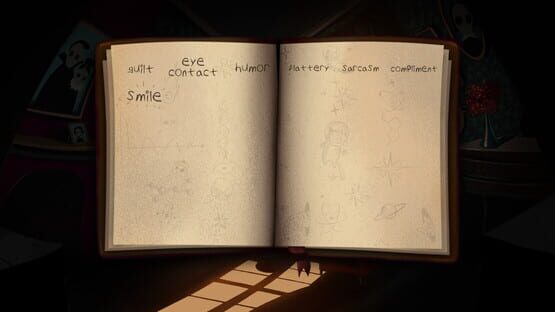 guilt eye contact humor flattery sarcasm compliment
smile